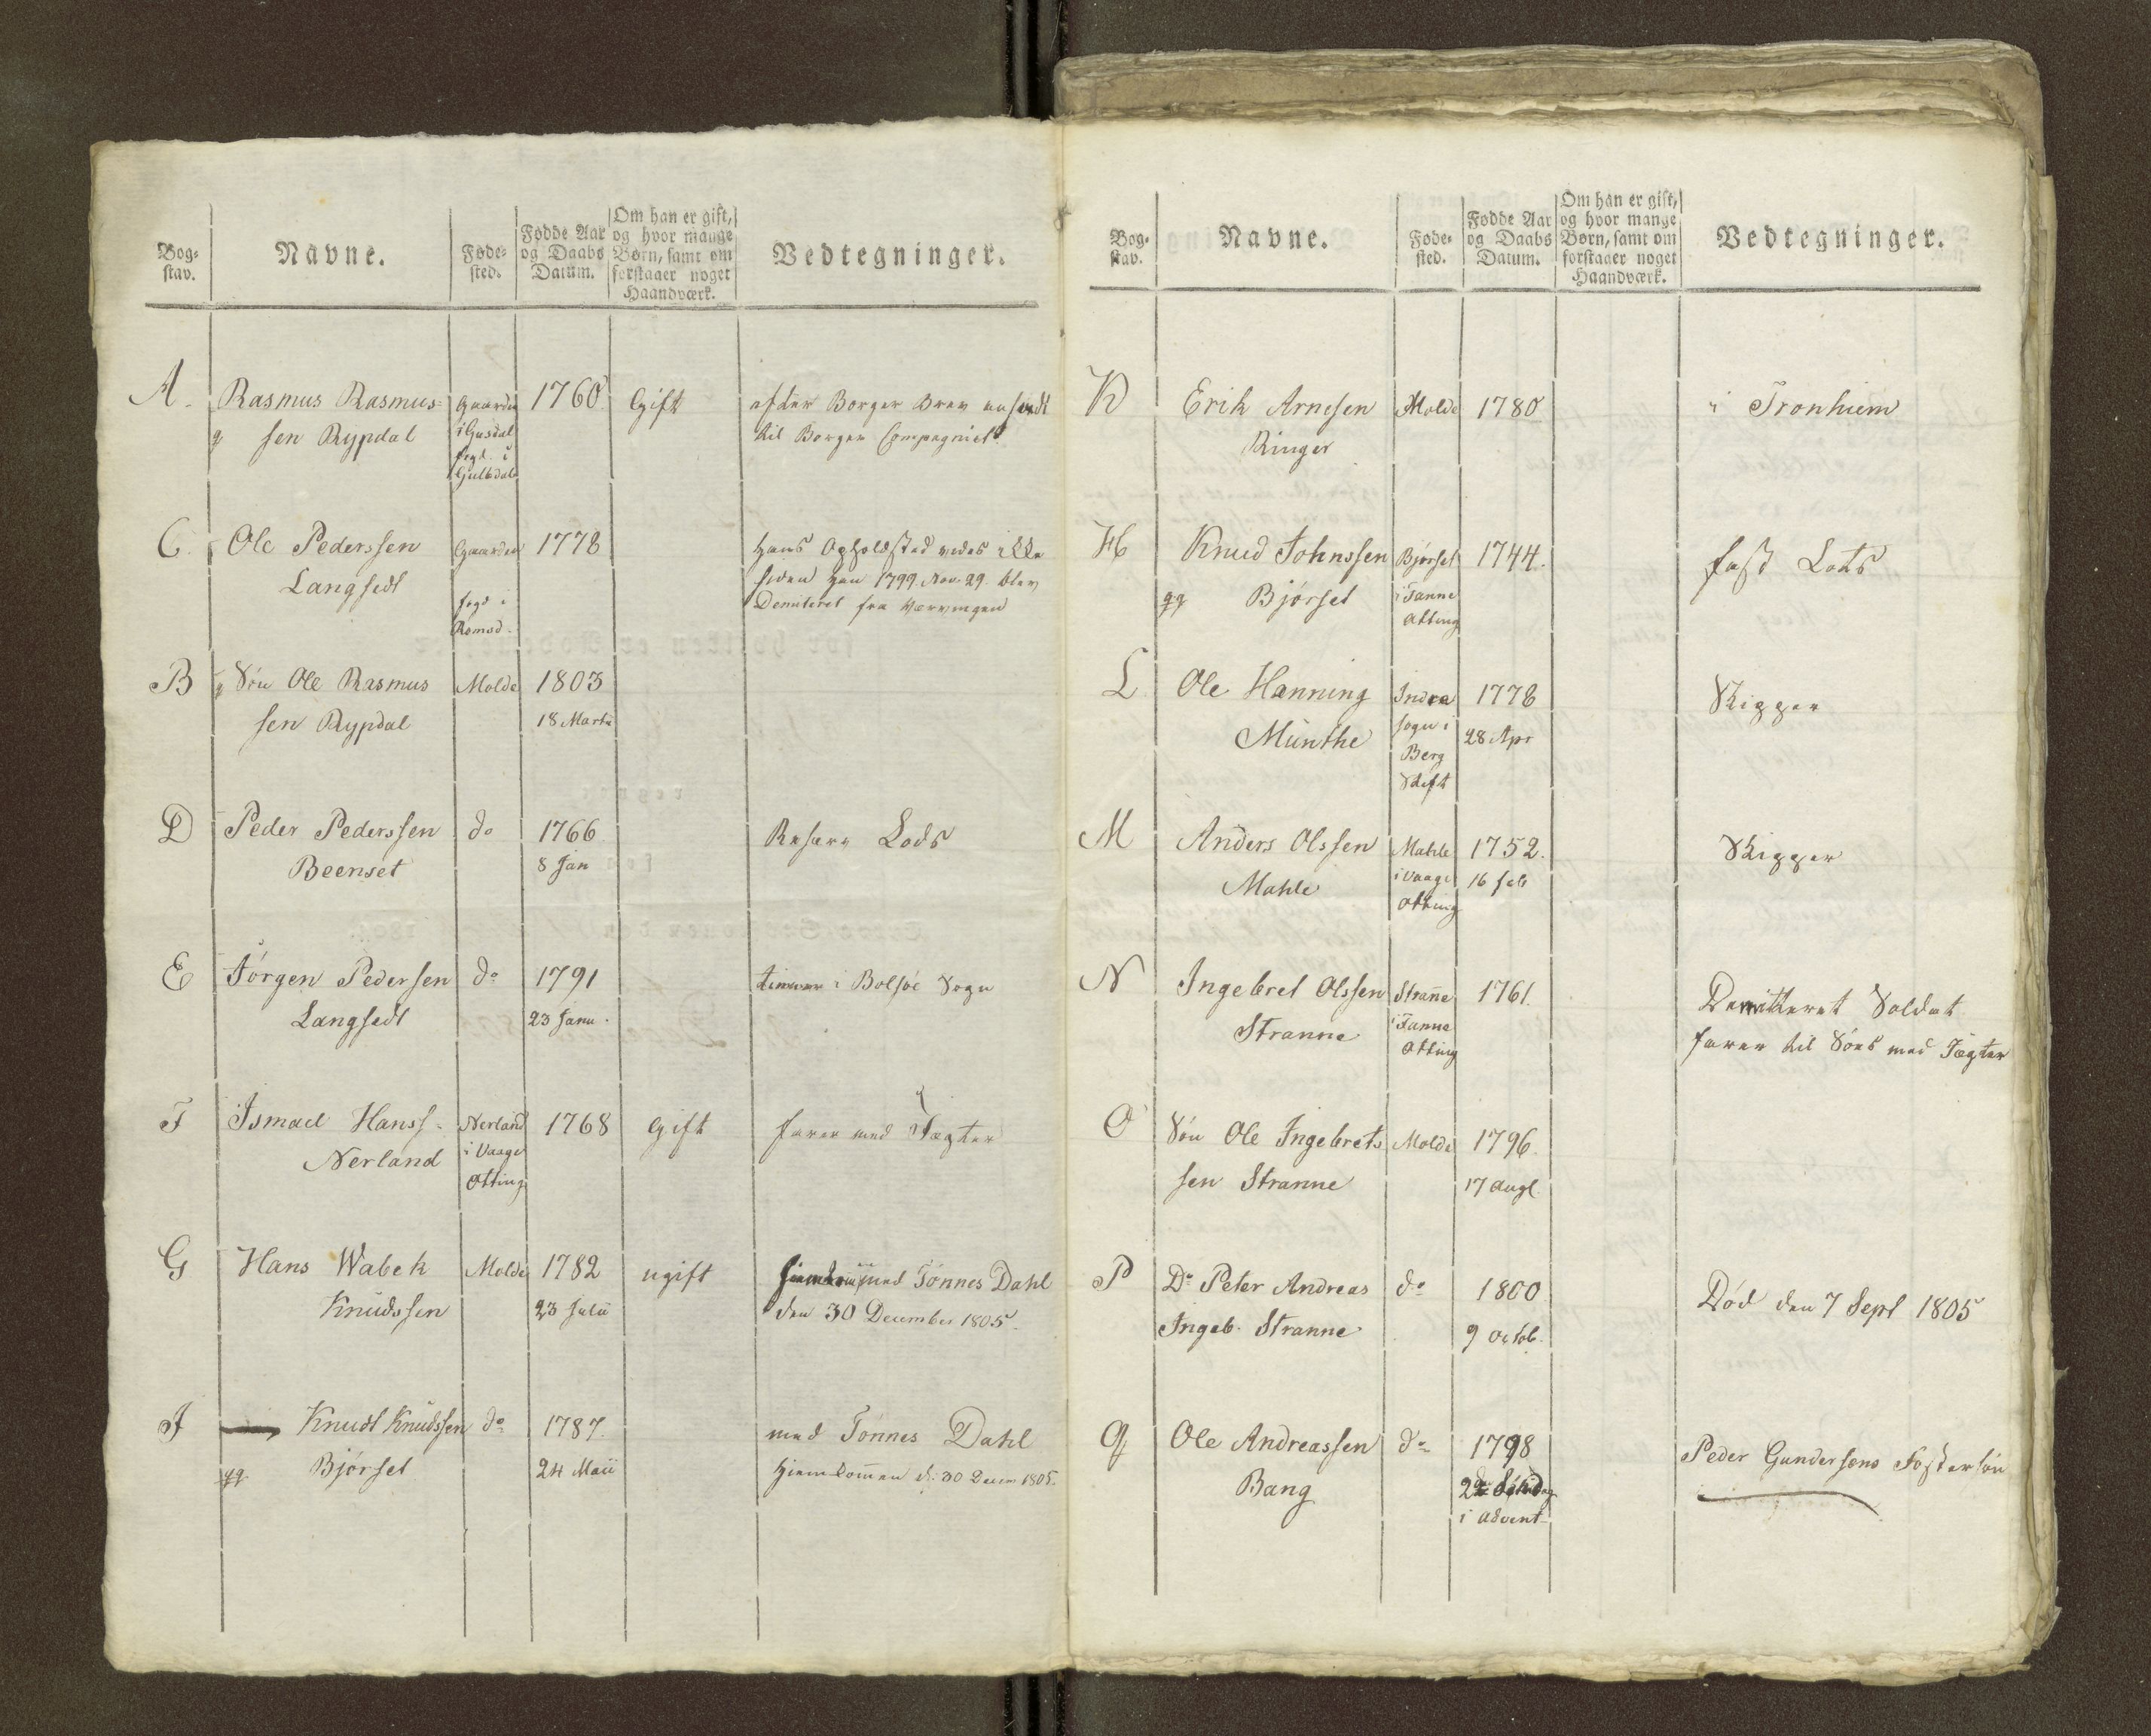 Bog-
stav.
Navne.
Føde-
sted.
Fødde Aar
og Daabs
Datum.
Om han er gift,
og hvor mange
Børn, samt om
forstaaer noget
Haandværk.
Vedtegninger.
A.
Rasmus Rasmus-
sen Rypdal
Gaarden
fogd. i
1760
Gift
efter Borger Brev
til Borger Compagniet
C.
Ole Pederssen
Langsedt
Gaarden
fogd i
Romsd.
1778
Hans Opholdsted vides ikke
siden han 1799 Nov. 29. blev
Demiteret fra Værvingen
B
Søn Ole Rasmus
sen Rypdal
Molde
1803
18 Martii
D
Peder Pederssen
Beenset
do
1766
8 Jan
Reserv Lods
E
Jörgen Pedersen
Langsedt
do
1791
23 Janu.
tienner i Bolsöe Sogn
F
Ismael Hanss-
Nerland
Nerland
i Vaage
Otting
1768
gift
farer med Jægter
G
Hans Wabek
Knudssen
Molde
1782
23 Julii
ugift
med Tönnes Dahl
den 30 December 1805.
I
Knudt Knudssen
qq. Björset
do
1787.
24 Maii
med Tönnes Dahl
hiemkommen d. 30 Decem 1805.
Bog-
stav.
Navne.
Føde-
sted.
Fødde Aar
og Daabs
Datum.
Om han er gift,
og hvor mange
Børn, samt om
forstaaer noget
Haandværk.
Vedtegninger.
K
Erik Arnesen
Ringer
Molde
1780
i Tronhiem
H
Knud Johnssen
qq Björset
Björset
i Fanne
Otting
1744.
fast Lots
L
Ole Hanning
Munthe
Indre
sogn i
Berg
Stift
1778
28 Apr
Skipper
M
Anders Olssen
Mahle
Mahle
i Vaage
Otting
1752.
16 feb
Skipper
N
Ingebret Olssen
Stranne
Stranne
i Fanne
Otting
1761.
Demitteret Soldat
farer til Söes med Jægter
O
Søn Ole Ingebrets
sen Stranne
Molde
1796.
17 Augt.
P
Do Peter Andreas
Ingeb. Stranne
do
1800
9 Octob.
Død den 7 Sept 1805
Q
Ole Andreassen
Bang
do
1798
2de Söndag
i Advent
Peder Gundersens Fostersön